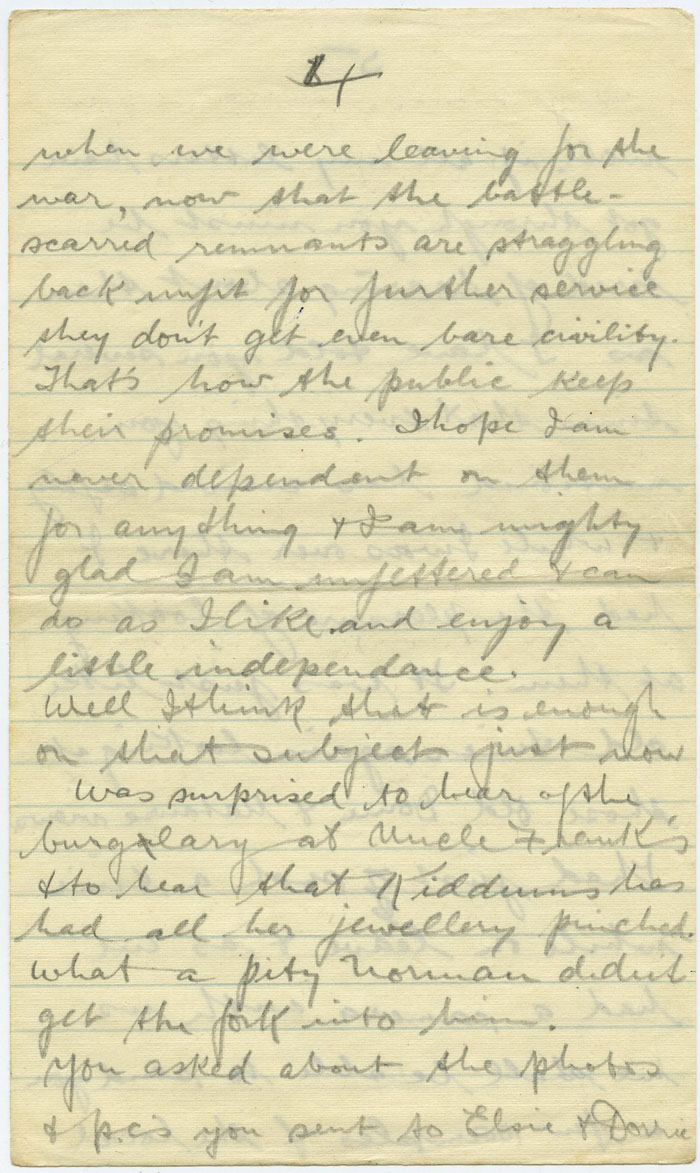 4
when we were leaving for the
war, now that the battle-
scarred remnants are straggling
back unfit for further service
they don't get even bare civility.
That's how the public keep
their promises. I hope I am
never dependent on them
for anything & I am mighty
glad I am unfettered & can
do as I like and enjoy a
little independance.
Well I think that is enough
on that subject just now
Was surprised to hear of the
burglary at Uncle Frank's
& to hear that Kiddums has
had all her jewellery pinched.
What a pity Norman didn't
get the fork into him.
You asked about the photos
& p.c's you sent to Elsie & Dorrie